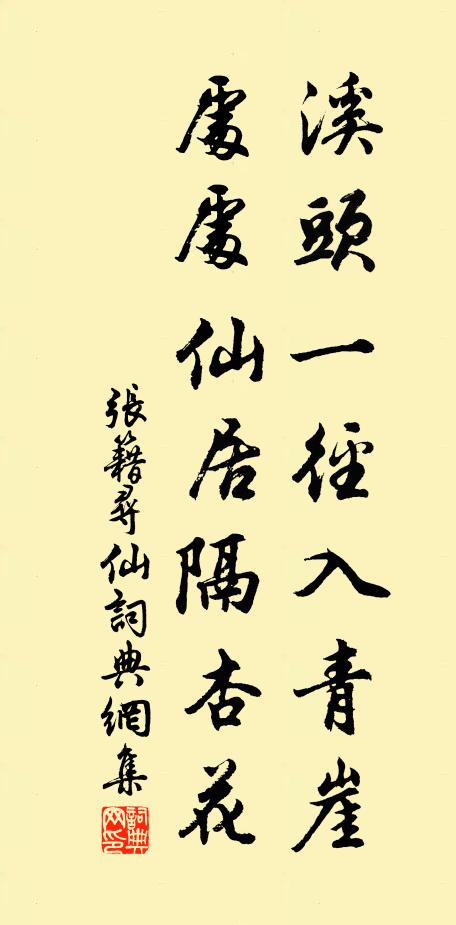 溪頭一徑入青崖
處處仙居隔杏花
張籍尋仙詞典網集
詞典网印